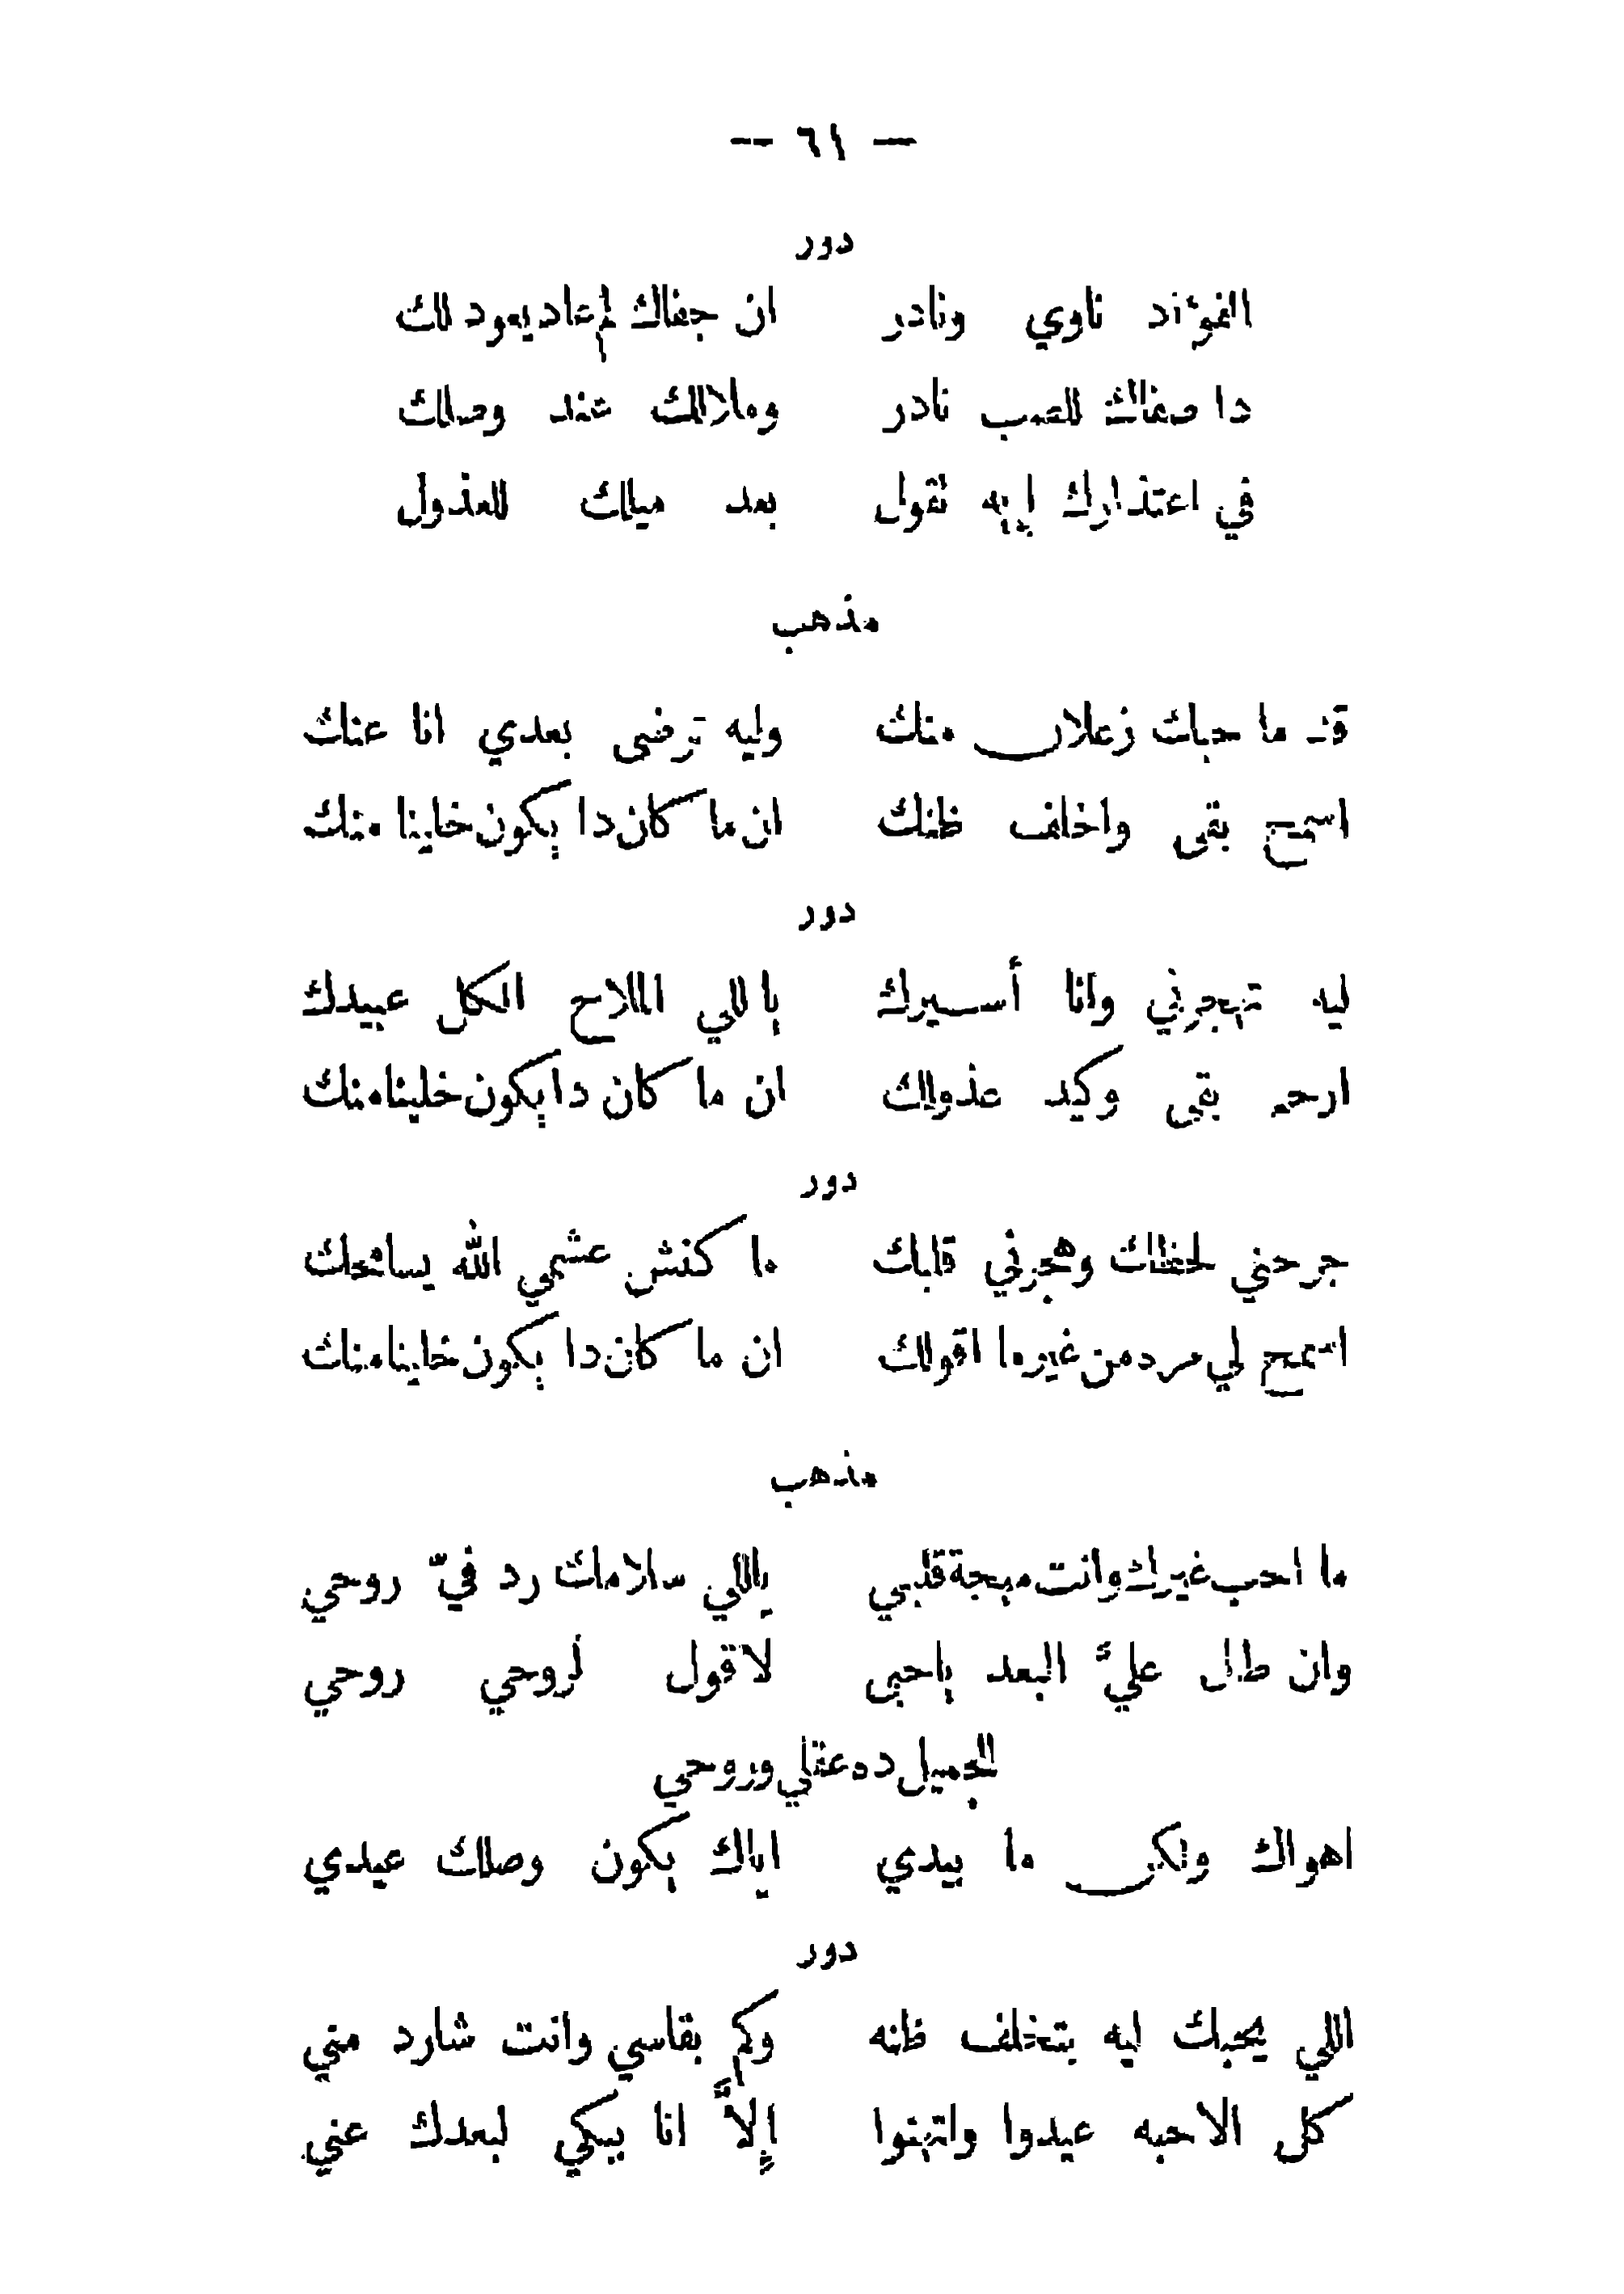 — ٦١ —
دور
الفؤاد ناوي ونادر ان جفاك لم عاد يعود لك
دا صفاك للصب نادر وملالك عند وصلك
في اعتذارك إيه تقول بعد ميلك للعذول
مذهب
قد ما حبك زعلان منك وليه ترضى بعدي انا عنك
اسمح بقى واخلف ظنك ان ما كان دا يكون خلينا منك
دور
ليه تهجرني وانا أسيرك ياللي الملاح الكل عبيدك
ارحم بقى وكيد عذولك ان ما كان دا يكون خلينا منك
دور
جرحني لحظك وهجرني قلبك ما كنش عشمي الله يسامحك
اسمح لي مرد من غير ما اقولك ان ما كان دا يكون خلينا منك
مذهب
ما احب غيرك وانت مهجة قلبي ياللي سلامك رد فيّ روحي
وان طال عليَّ البعد ياحبي لاقول لروحي روحي
الجميل ده عقلي وروحي
اهواك ولكن ما بيدي اياك يكون وصلك عيدي
دور
اللي يحبك ليه بتخلف ظنه وكم بقاسي وانت شارد مني
كل الاحبه عيدوا واتهنوا إلاَّ انا يبكي لبعدك عني